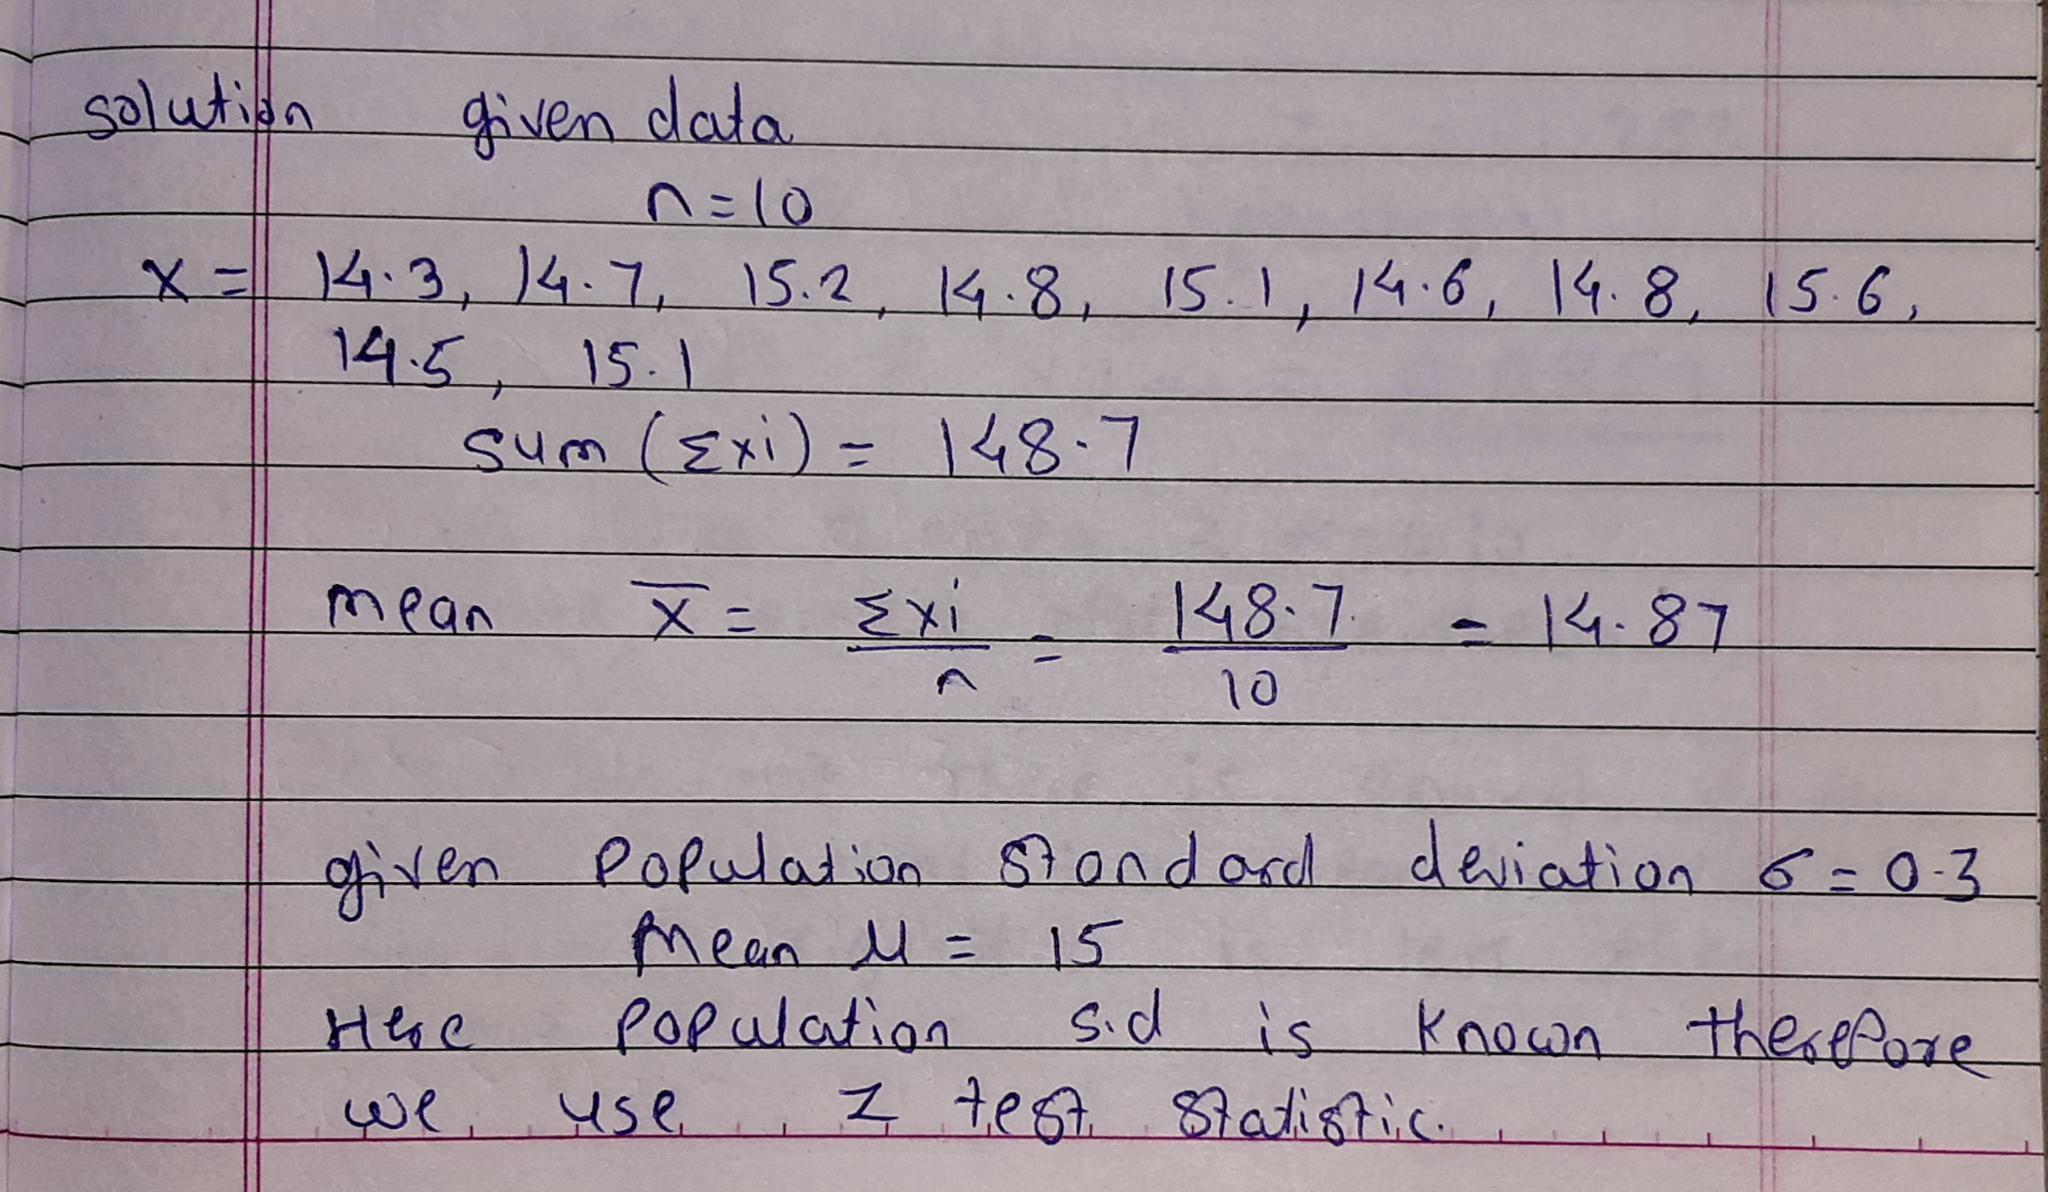 solution given data
n=10
x = 14.3, 14.7, 15.2, 14.8, 15.1, 14.6, 14.8, 15.6,
14.5, 15.1
sum (Σxi) = 148.7
mean x̄ = Σxi / n = 148.7 / 10 = 14.87
given population standard deviation σ = 0.3
mean μ = 15
Here population s.d is known therefore
we use z test statistic.